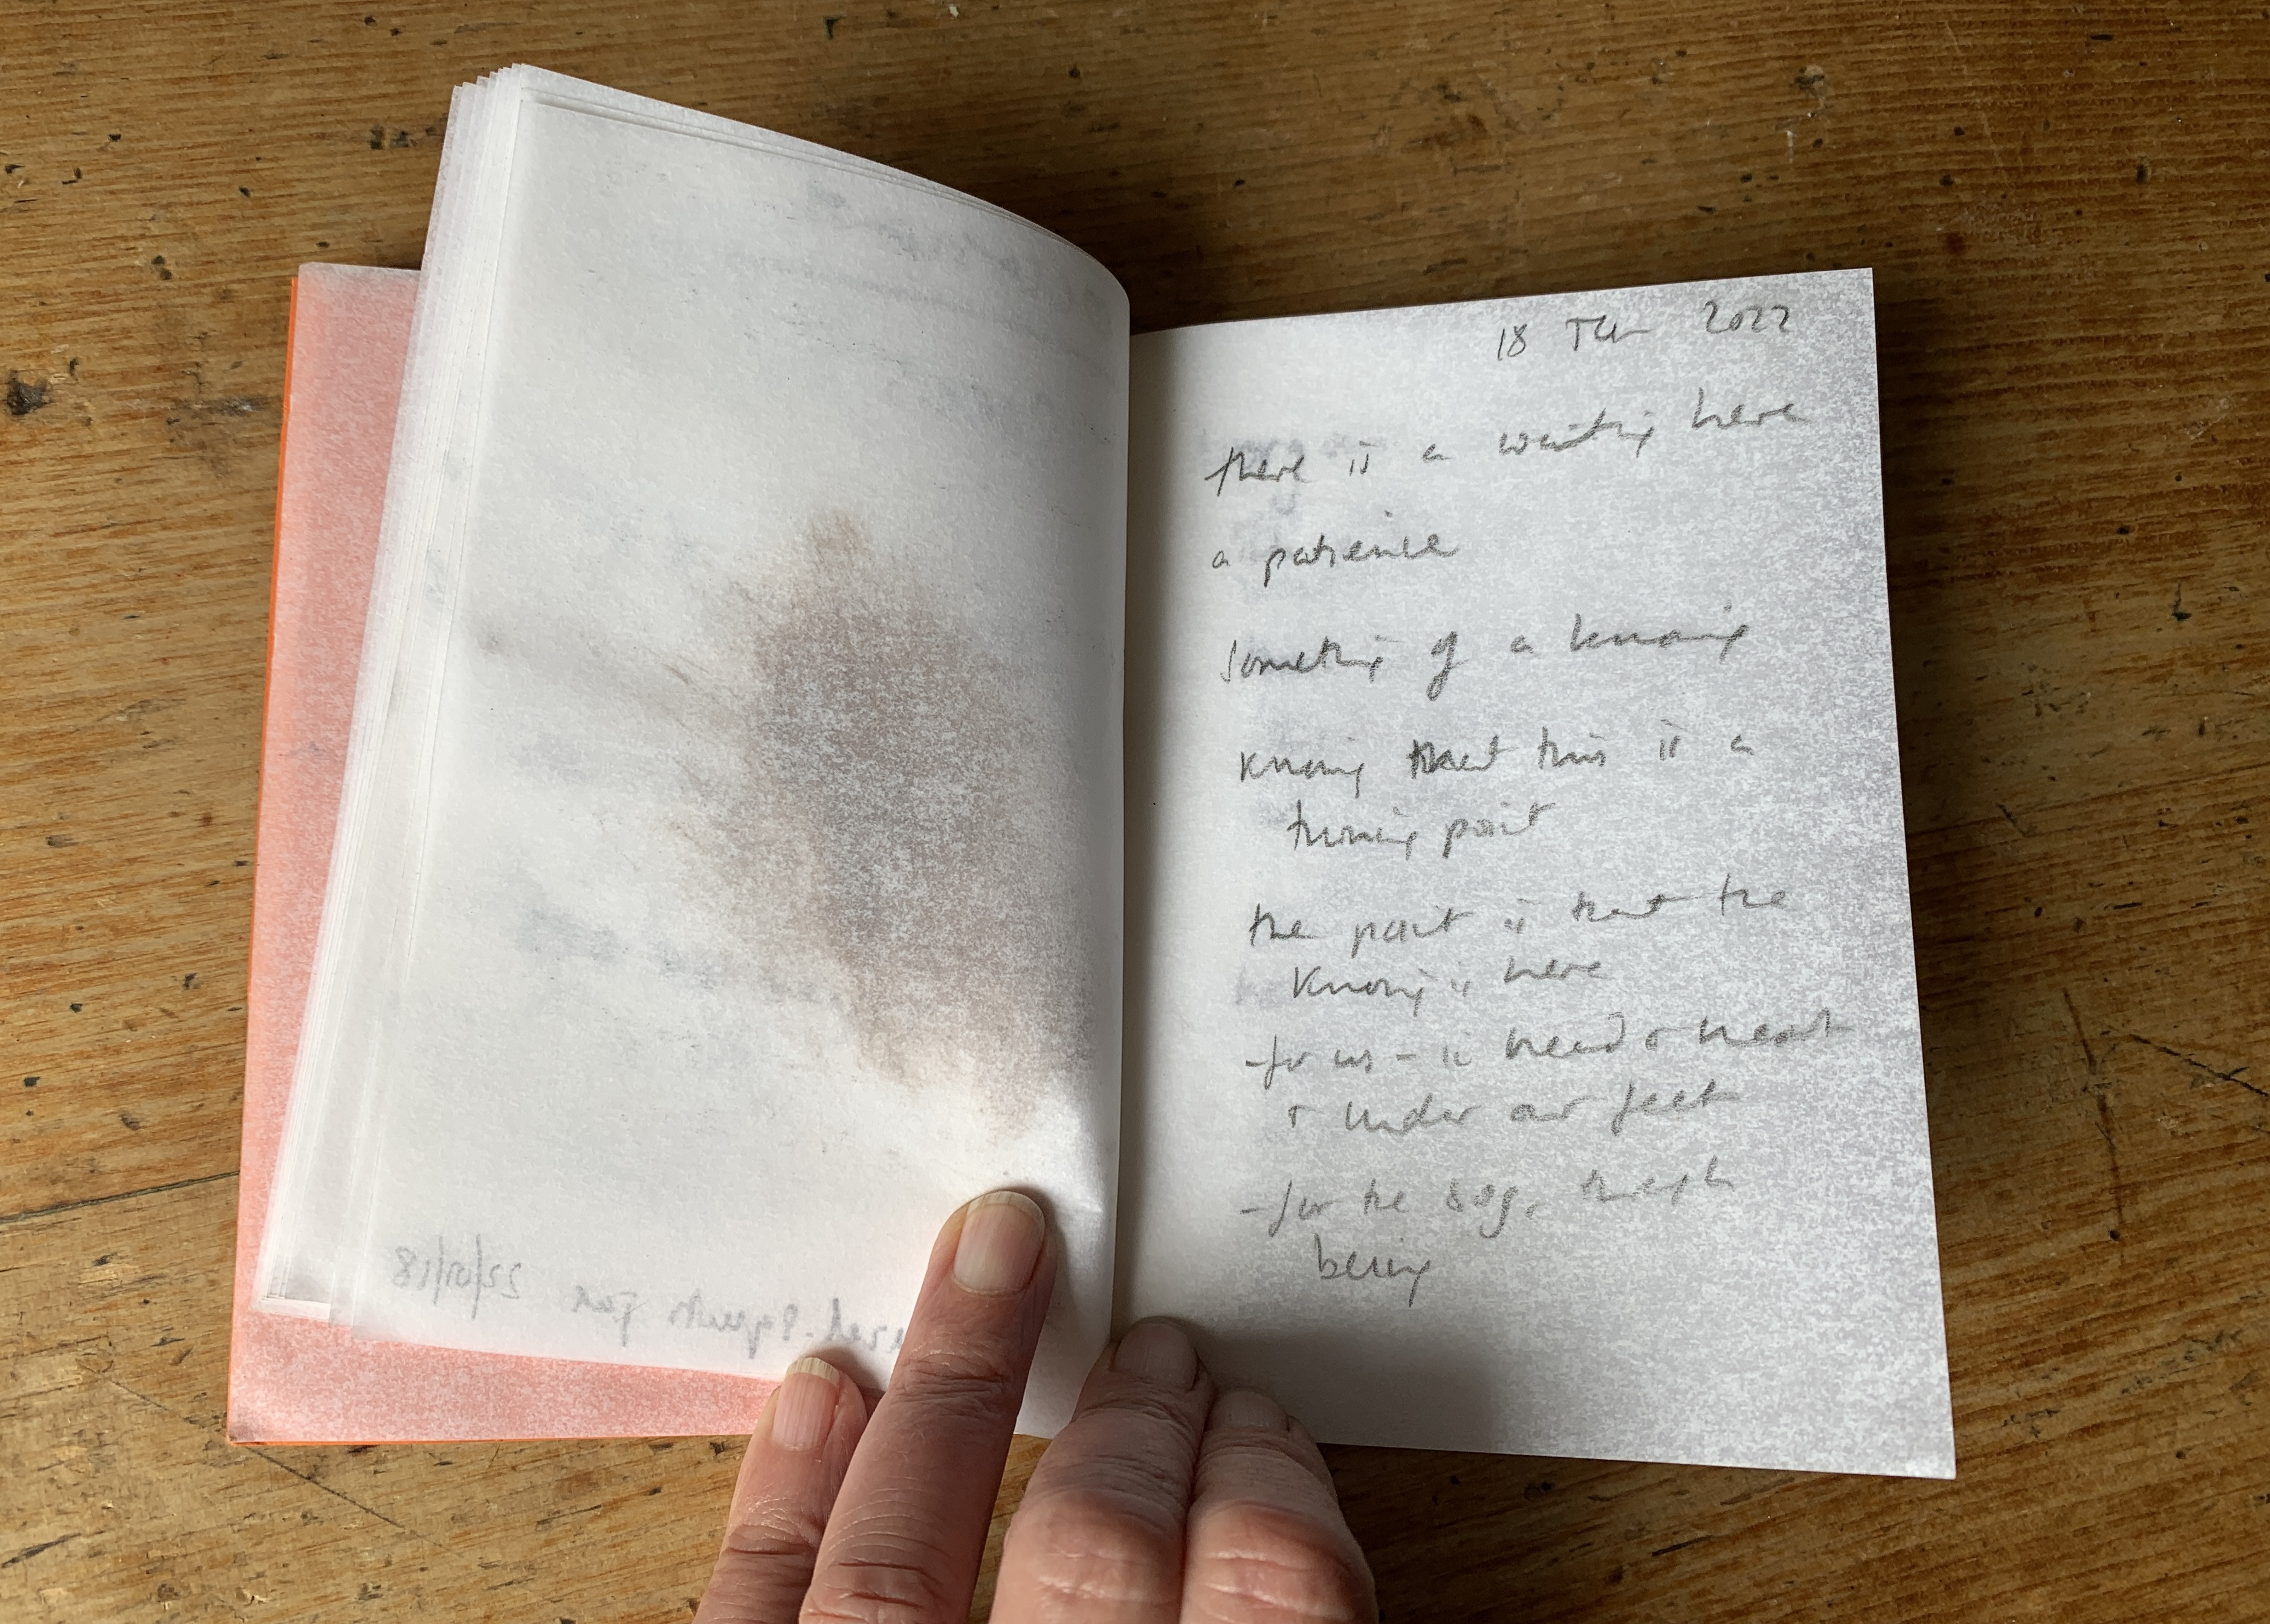 18 Jan 2022
there is a waiting here
a patience
something of a knowing
knowing that this is a
turning point
the point is that the
knowing is here
- for us - in head & heart
& under our feet
- for the bog, through
being
22/01/18